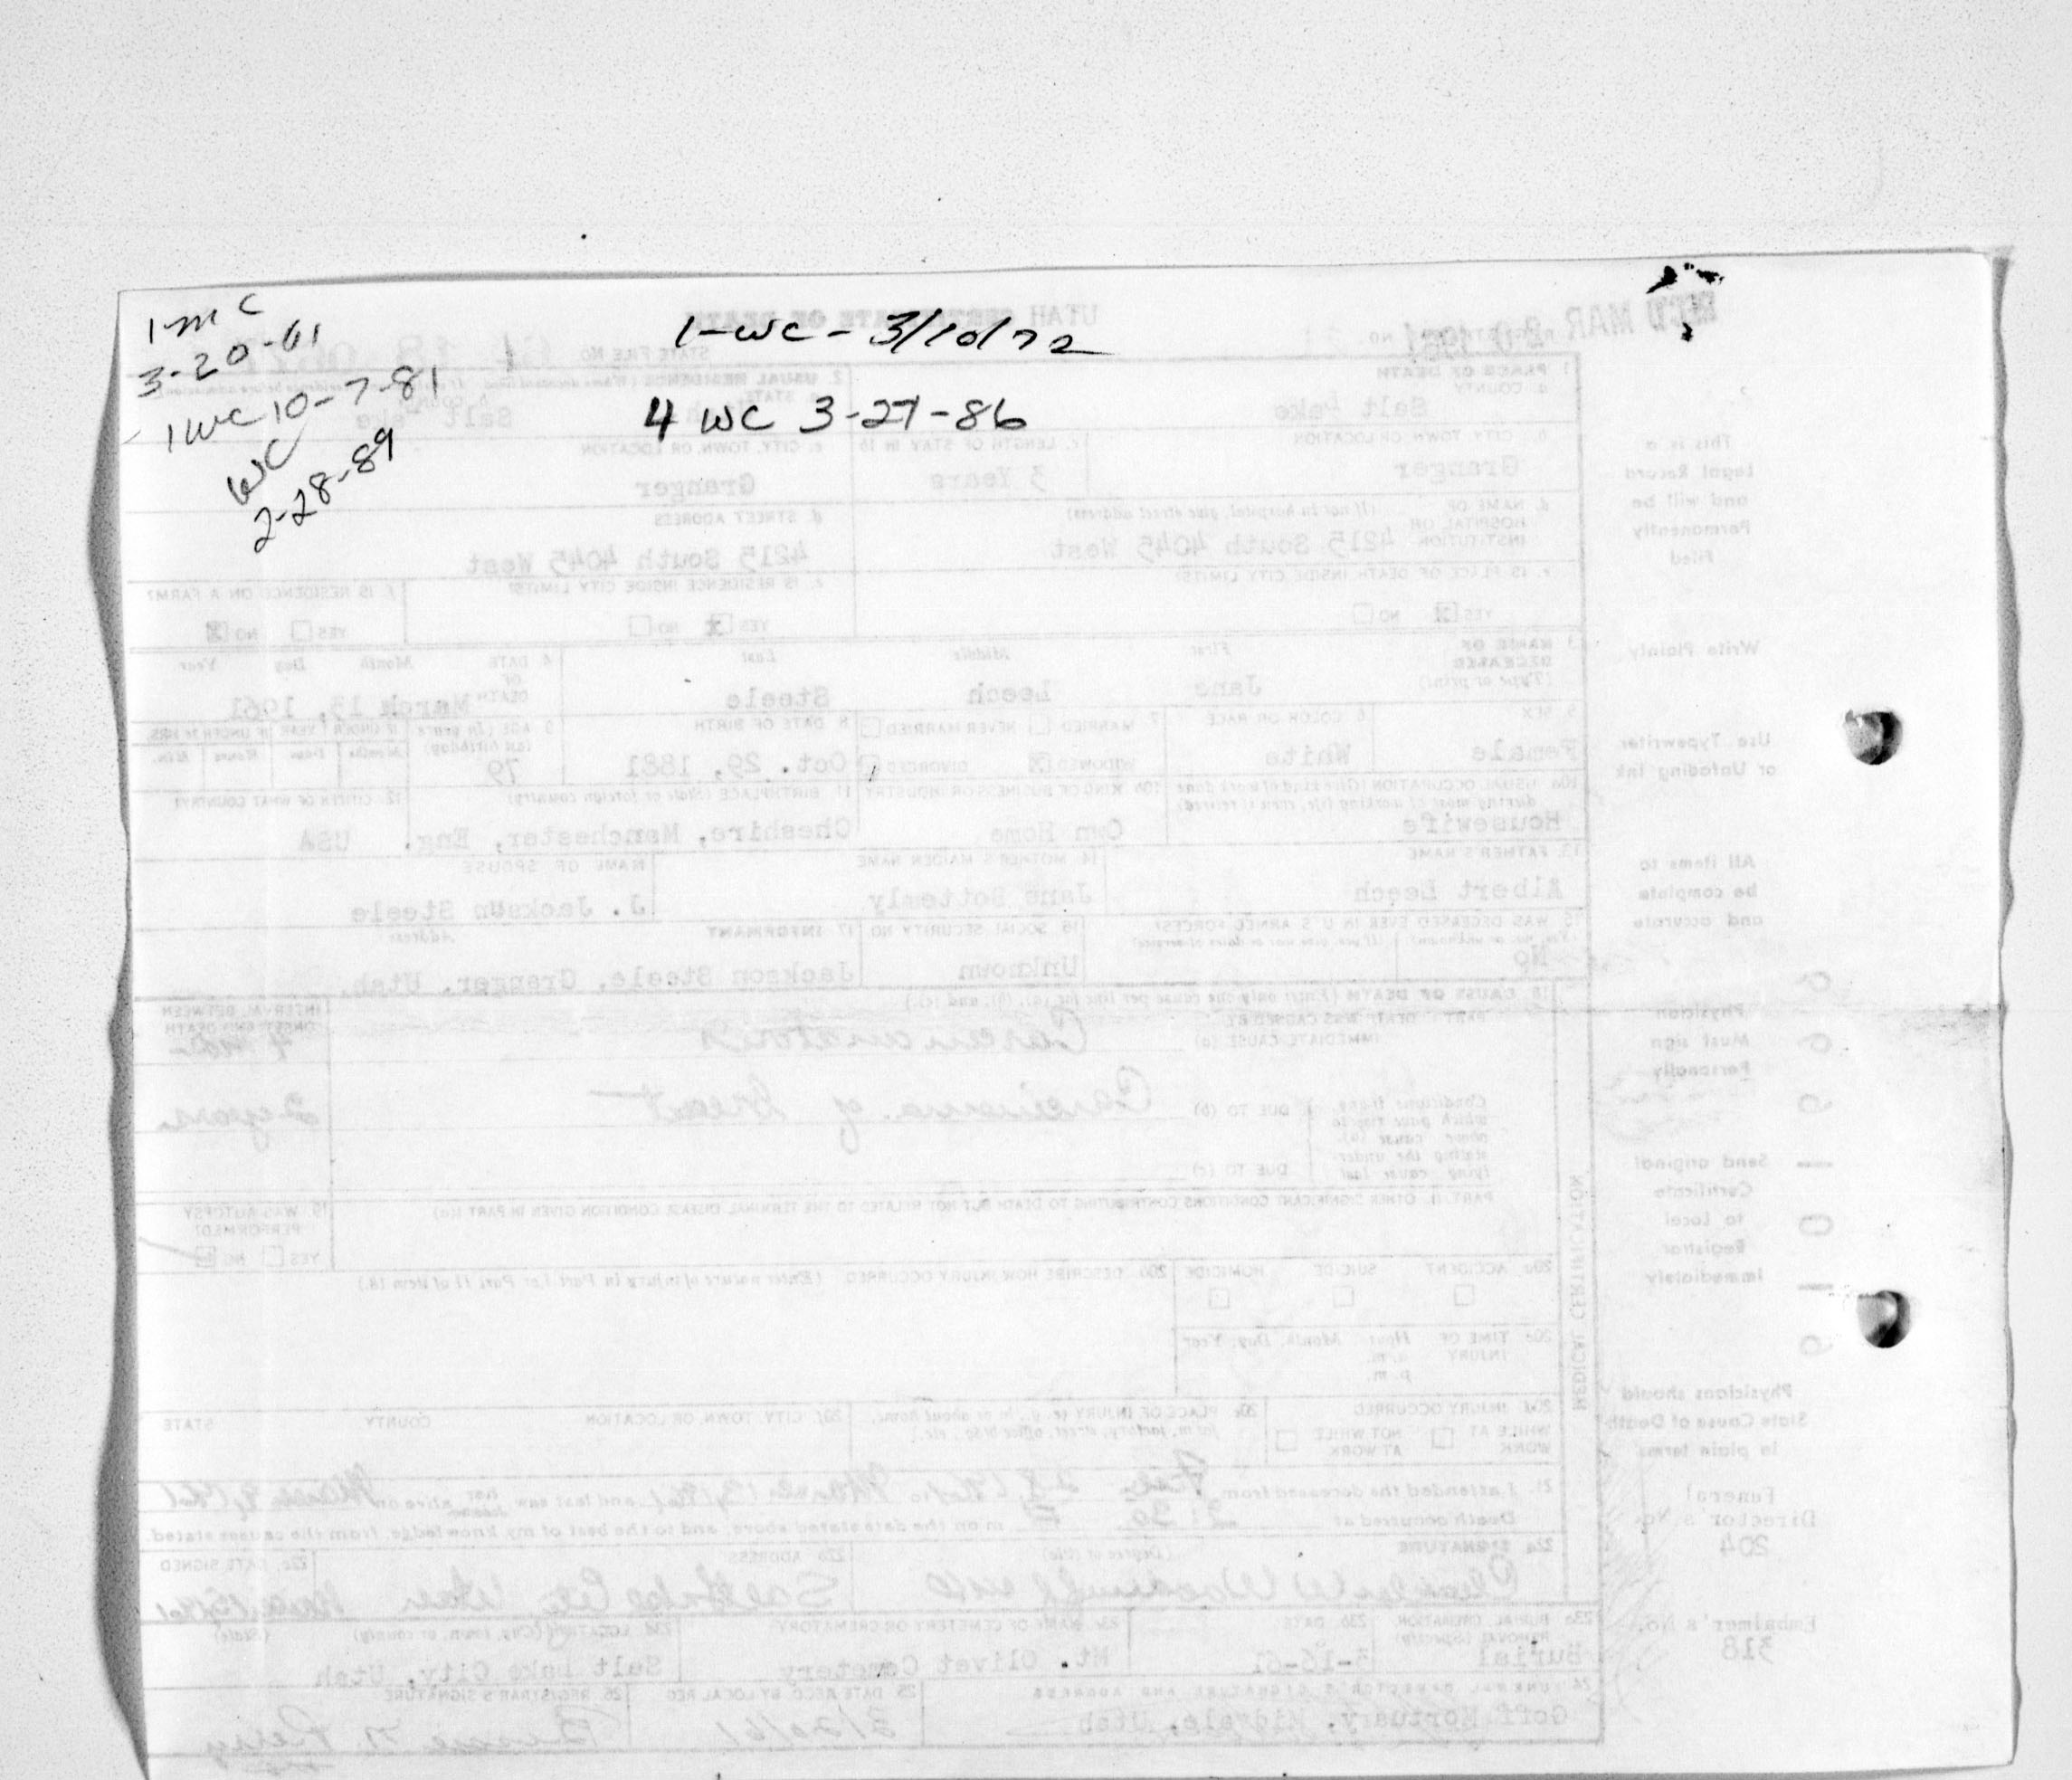 1-mc
3-20-61
1 WC 10-7-81
WC
2-28-89
1-WC-3/10/72
4 WC 3-27-86
UTAH CERTIFICATE OF DEATH
STATE FILE NO
1 PLACE OF DEATH
a. COUNTY
Salt Lake
2. USUAL RESIDENCE
a. STATE
b. COUNTY
Salt Lake
b. CITY, TOWN, OR LOCATION
Granger
c. LENGTH OF STAY in 1b
3 Years
c. CITY, TOWN, OR LOCATION
Granger
d. NAME OF HOSPITAL OR INSTITUTION
(If not in hospital, give street address)
4215 South 4045 West
d. STREET ADDRESS
4215 South 4045 West
e. IS PLACE OF DEATH INSIDE CITY LIMITS?
YES NO
e. IS RESIDENCE INSIDE CITY LIMITS?
YES NO
f. IS RESIDENCE ON A FARM?
YES NO
3. NAME OF DECEASED
(Type or print)
First Middle Last
Jane Leech Steele
4. DATE OF DEATH
Month Day Year
March 13, 1961
5. SEX
Female
6. COLOR OR RACE
White
7. MARRIED NEVER MARRIED
WIDOWED DIVORCED
8. DATE OF BIRTH
Oct. 29, 1881
9. AGE (In years last birthday)
79
10a. USUAL OCCUPATION (Give kind of work done during most of working life, even if retired)
Housewife
10b. KIND OF BUSINESS OR INDUSTRY
Own Home
11. BIRTHPLACE (State or foreign country)
Cheshire, Manchester, Eng.
12. CITIZEN OF WHAT COUNTRY?
USA
13. FATHER'S NAME
Albert Leech
14. MOTHER'S MAIDEN NAME
Jane Bottomly
NAME OF SPOUSE
J. Jackson Steele
15. WAS DECEASED EVER IN U.S. ARMED FORCES?
No
16. SOCIAL SECURITY NO.
Unknown
17. INFORMANT
Address
Jackson Steele, Granger, Utah.
18. CAUSE OF DEATH (Enter only one cause per line for (a), (b), and (c).)
PART I. DEATH WAS CAUSED BY:
IMMEDIATE CAUSE (a)
Carcinomatosis
INTERVAL BETWEEN ONSET AND DEATH
Conditions, if any, which gave rise to above cause (a), stating the underlying cause last
DUE TO (b)
Carcinoma of breast
2 years
DUE TO (c)
PART II. OTHER SIGNIFICANT CONDITIONS CONTRIBUTING TO DEATH BUT NOT RELATED TO THE TERMINAL DISEASE CONDITION GIVEN IN PART I(a)
19. WAS AUTOPSY PERFORMED?
YES NO
20a. ACCIDENT SUICIDE HOMICIDE
20b. DESCRIBE HOW INJURY OCCURRED (Enter nature of injury in Part I or Part II of item 18.)
20c. TIME OF INJURY
Hour Month, Day, Year
a.m.
p.m.
20d. INJURY OCCURRED
WHILE AT WORK NOT WHILE AT WORK
20e. PLACE OF INJURY (e. g., in or about home, farm, factory, street, office bldg., etc.)
20f. CITY, TOWN, OR LOCATION COUNTY STATE
21. I attended the deceased from
and last saw
alive on
Death occurred at
m on the date stated above, and to the best of my knowledge, from the causes stated.
22a. SIGNATURE
(Degree or title)
22b. ADDRESS
Salt Lake City, Utah
22c. DATE SIGNED
23a. BURIAL, CREMATION, REMOVAL (Specify)
Burial
23b. DATE
3-16-61
23c. NAME OF CEMETERY OR CREMATORY
Mt. Olivet Cemetery
23d. LOCATION (City, town, or county) (State)
Salt Lake City, Utah
24. FUNERAL DIRECTOR'S SIGNATURE AND ADDRESS
Goff Mortuary, Midvale, Utah
25. DATE RECD. BY LOCAL REG.
3/20/61
26. REGISTRAR'S SIGNATURE
MEDICAL CERTIFICATION
This is a
Legal Record
and will be
Permanently
Filed
Write Plainly
Use Typewriter
or Unfading Ink
All items to
be complete
and accurate
Physician
Must sign
Personally
Send original
Certificate
to Local
Registrar
Immediately
Physicians should
State Cause of Death
in plain terms
Funeral
Director's No.
204
Embalmer's No.
318